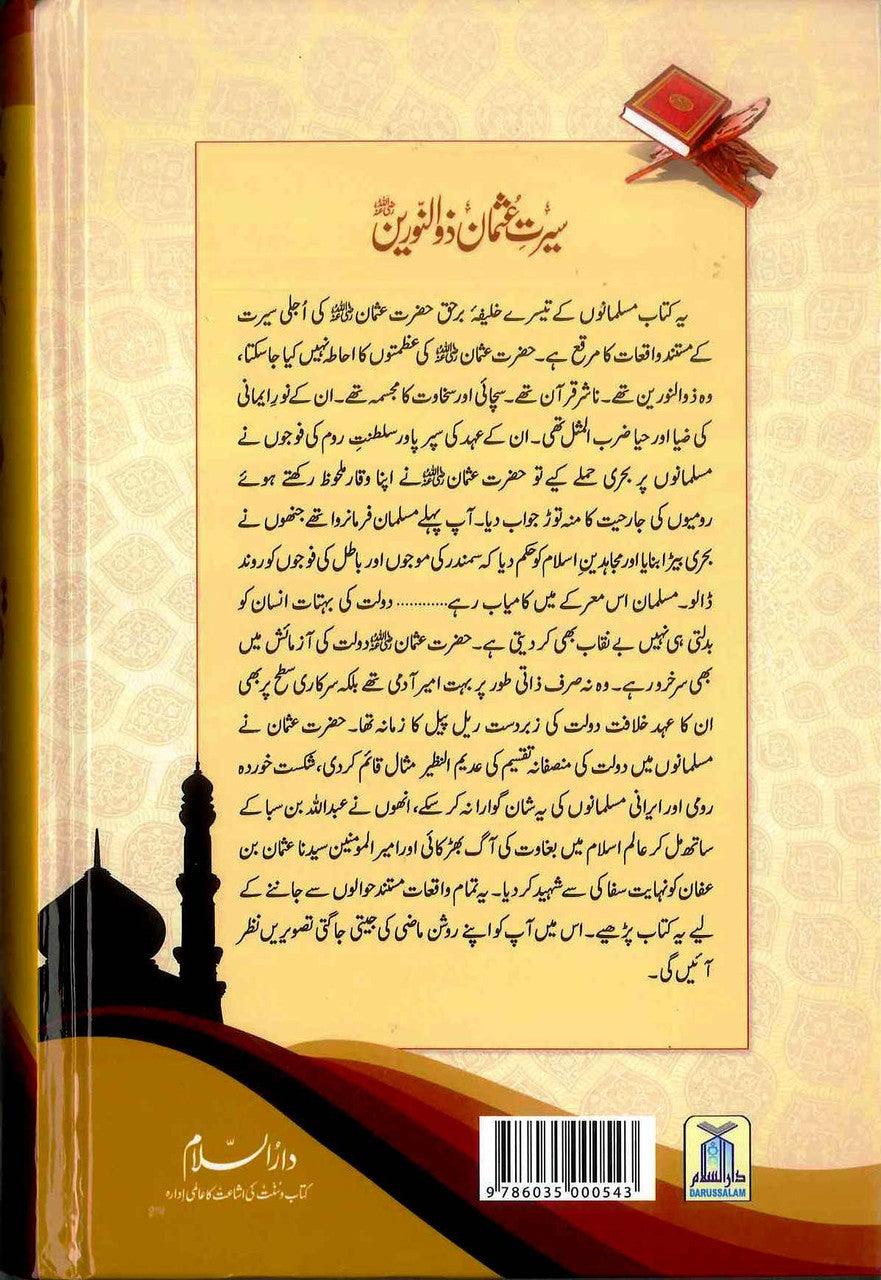 سیرتِ عُثمان ذوالنّورین رضی اللہ عنہ
یہ کتاب مسلمانوں کے تیسرے خلیفۂ برحق حضرت عثمان رضی اللہ عنہ کی اُجلی سیرت
کے مستند واقعات کا مرقع ہے۔ حضرت عثمان رضی اللہ عنہ کی عظمتوں کا احاطہ نہیں کیا جا سکتا،
وہ ذوالنورین تھے۔ ناشر قرآن تھے۔ سچائی اور سخاوت کا مجسمہ تھے۔ ان کے نورِ ایمانی
کی ضیا اور حیا ضرب المثل تھی۔ ان کے عہد کی سپر پاور سلطنتِ روم کی فوجوں نے
مسلمانوں پر بحری حملے کیے تو حضرت عثمان رضی اللہ عنہ نے اپنا وقار ملحوظ رکھتے ہوئے
رومیوں کی جارحیت کا منہ توڑ جواب دیا۔ آپ پہلے مسلمان فرمانروا تھے جنھوں نے
بحری بیڑا بنایا اور مجاہدینِ اسلام کو حکم دیا کہ سمندر کی موجوں اور باطل کی فوجوں کو روند
ڈالو۔ مسلمان اس معرکے میں کامیاب رہے............ دولت کی بہتات انسان کو
بدلتی ہی نہیں بے نقاب بھی کر دیتی ہے۔ حضرت عثمان رضی اللہ عنہ دولت کی آزمائش میں
بھی سرخرو رہے۔ وہ نہ صرف ذاتی طور پر بہت امیر آدمی تھے بلکہ سرکاری سطح پر بھی
ان کا عہد خلافت دولت کی زبردست ریل پیل کا زمانہ تھا۔ حضرت عثمان نے
مسلمانوں میں دولت کی منصفانہ تقسیم کی عدیم النظیر مثال قائم کر دی، شکست خوردہ
رومی اور ایرانی مسلمانوں کی یہ شان گوارا نہ کر سکے، انھوں نے عبداللہ بن سبا کے
ساتھ مل کر عالم اسلام میں بغاوت کی آگ بھڑکائی اور امیر المومنین سیدنا عثمان بن
عفان کو نہایت سفاکی سے شہید کر دیا۔ یہ تمام واقعات مستند حوالوں سے جاننے کے
لیے یہ کتاب پڑھیے۔ اس میں آپ کو اپنے روشن ماضی کی جیتی جاگتی تصویریں نظر
آئیں گی۔
دارُالسّلام
کتاب و سُنّت کی اشاعت کا عالمی ادارہ
9 786035 000543
دارالسلام
DARUSSALAM